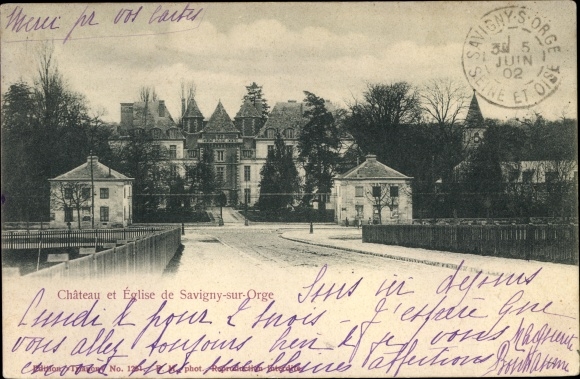 Merci pr vos cartes
SAVIGNY-S-ORGE
5
JUIN
02
SEINE ET OISE
Château et Église de Savigny-sur-Orge
Suis ici depuis
Lundi et pour 2 mois - J'espère que
vous allez toujours bien et je vous
envoie mes meilleures affections
Édition No. phot. Reproduction interdite